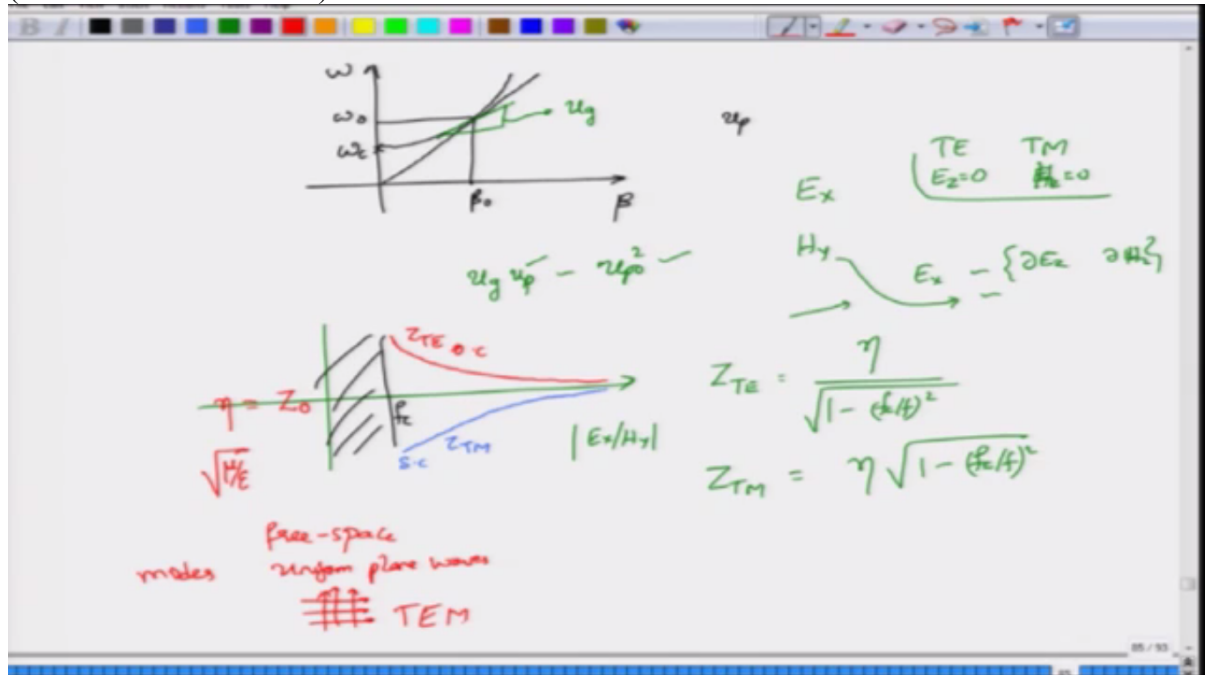 ω
ω₀
ωc
β₀
β
u_g
u_p
TE TM
E_z=0 H_z=0
E_x
H_y
E_x - {∂E_z ∂H_z}
u_g u_p - u_p0²
Z_TE o.c
η = Z₀
f_c
√μ/ε
s.c
Z_TM
|E_x/H_y|
Z_TE = η / √1 - (f_c/f)²
Z_TM = η √1 - (f_c/f)²
free-space
modes uniform plane waves
TEM
85 / 93